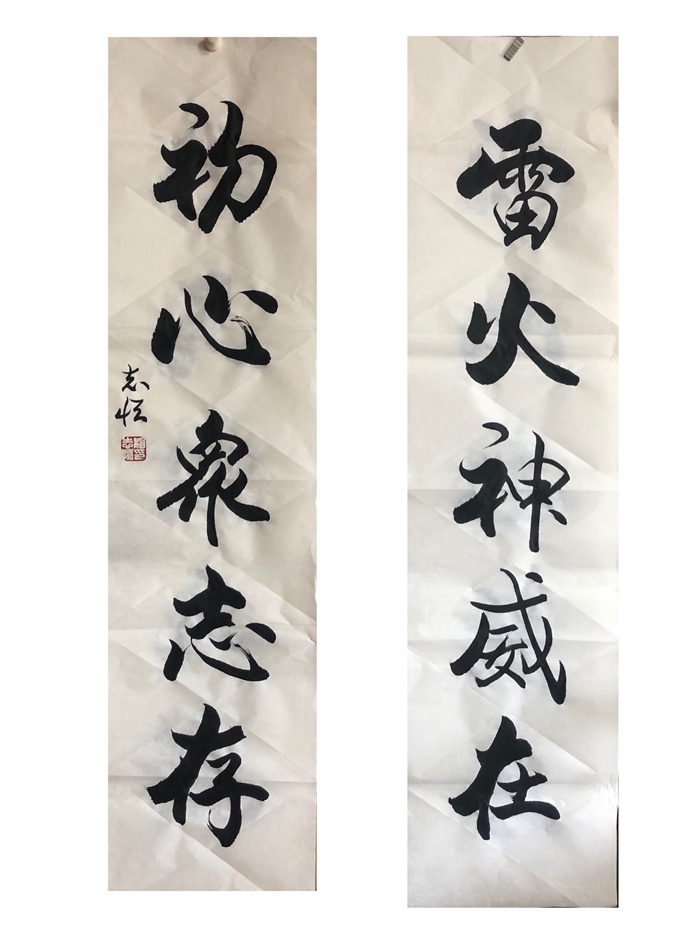 雷火神威在
初心衆志存
志恒